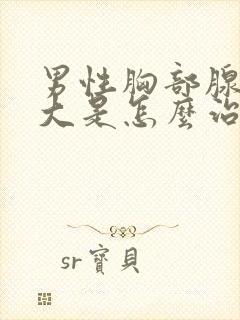 男性胸部腺
大是怎麼治
sr寶貝